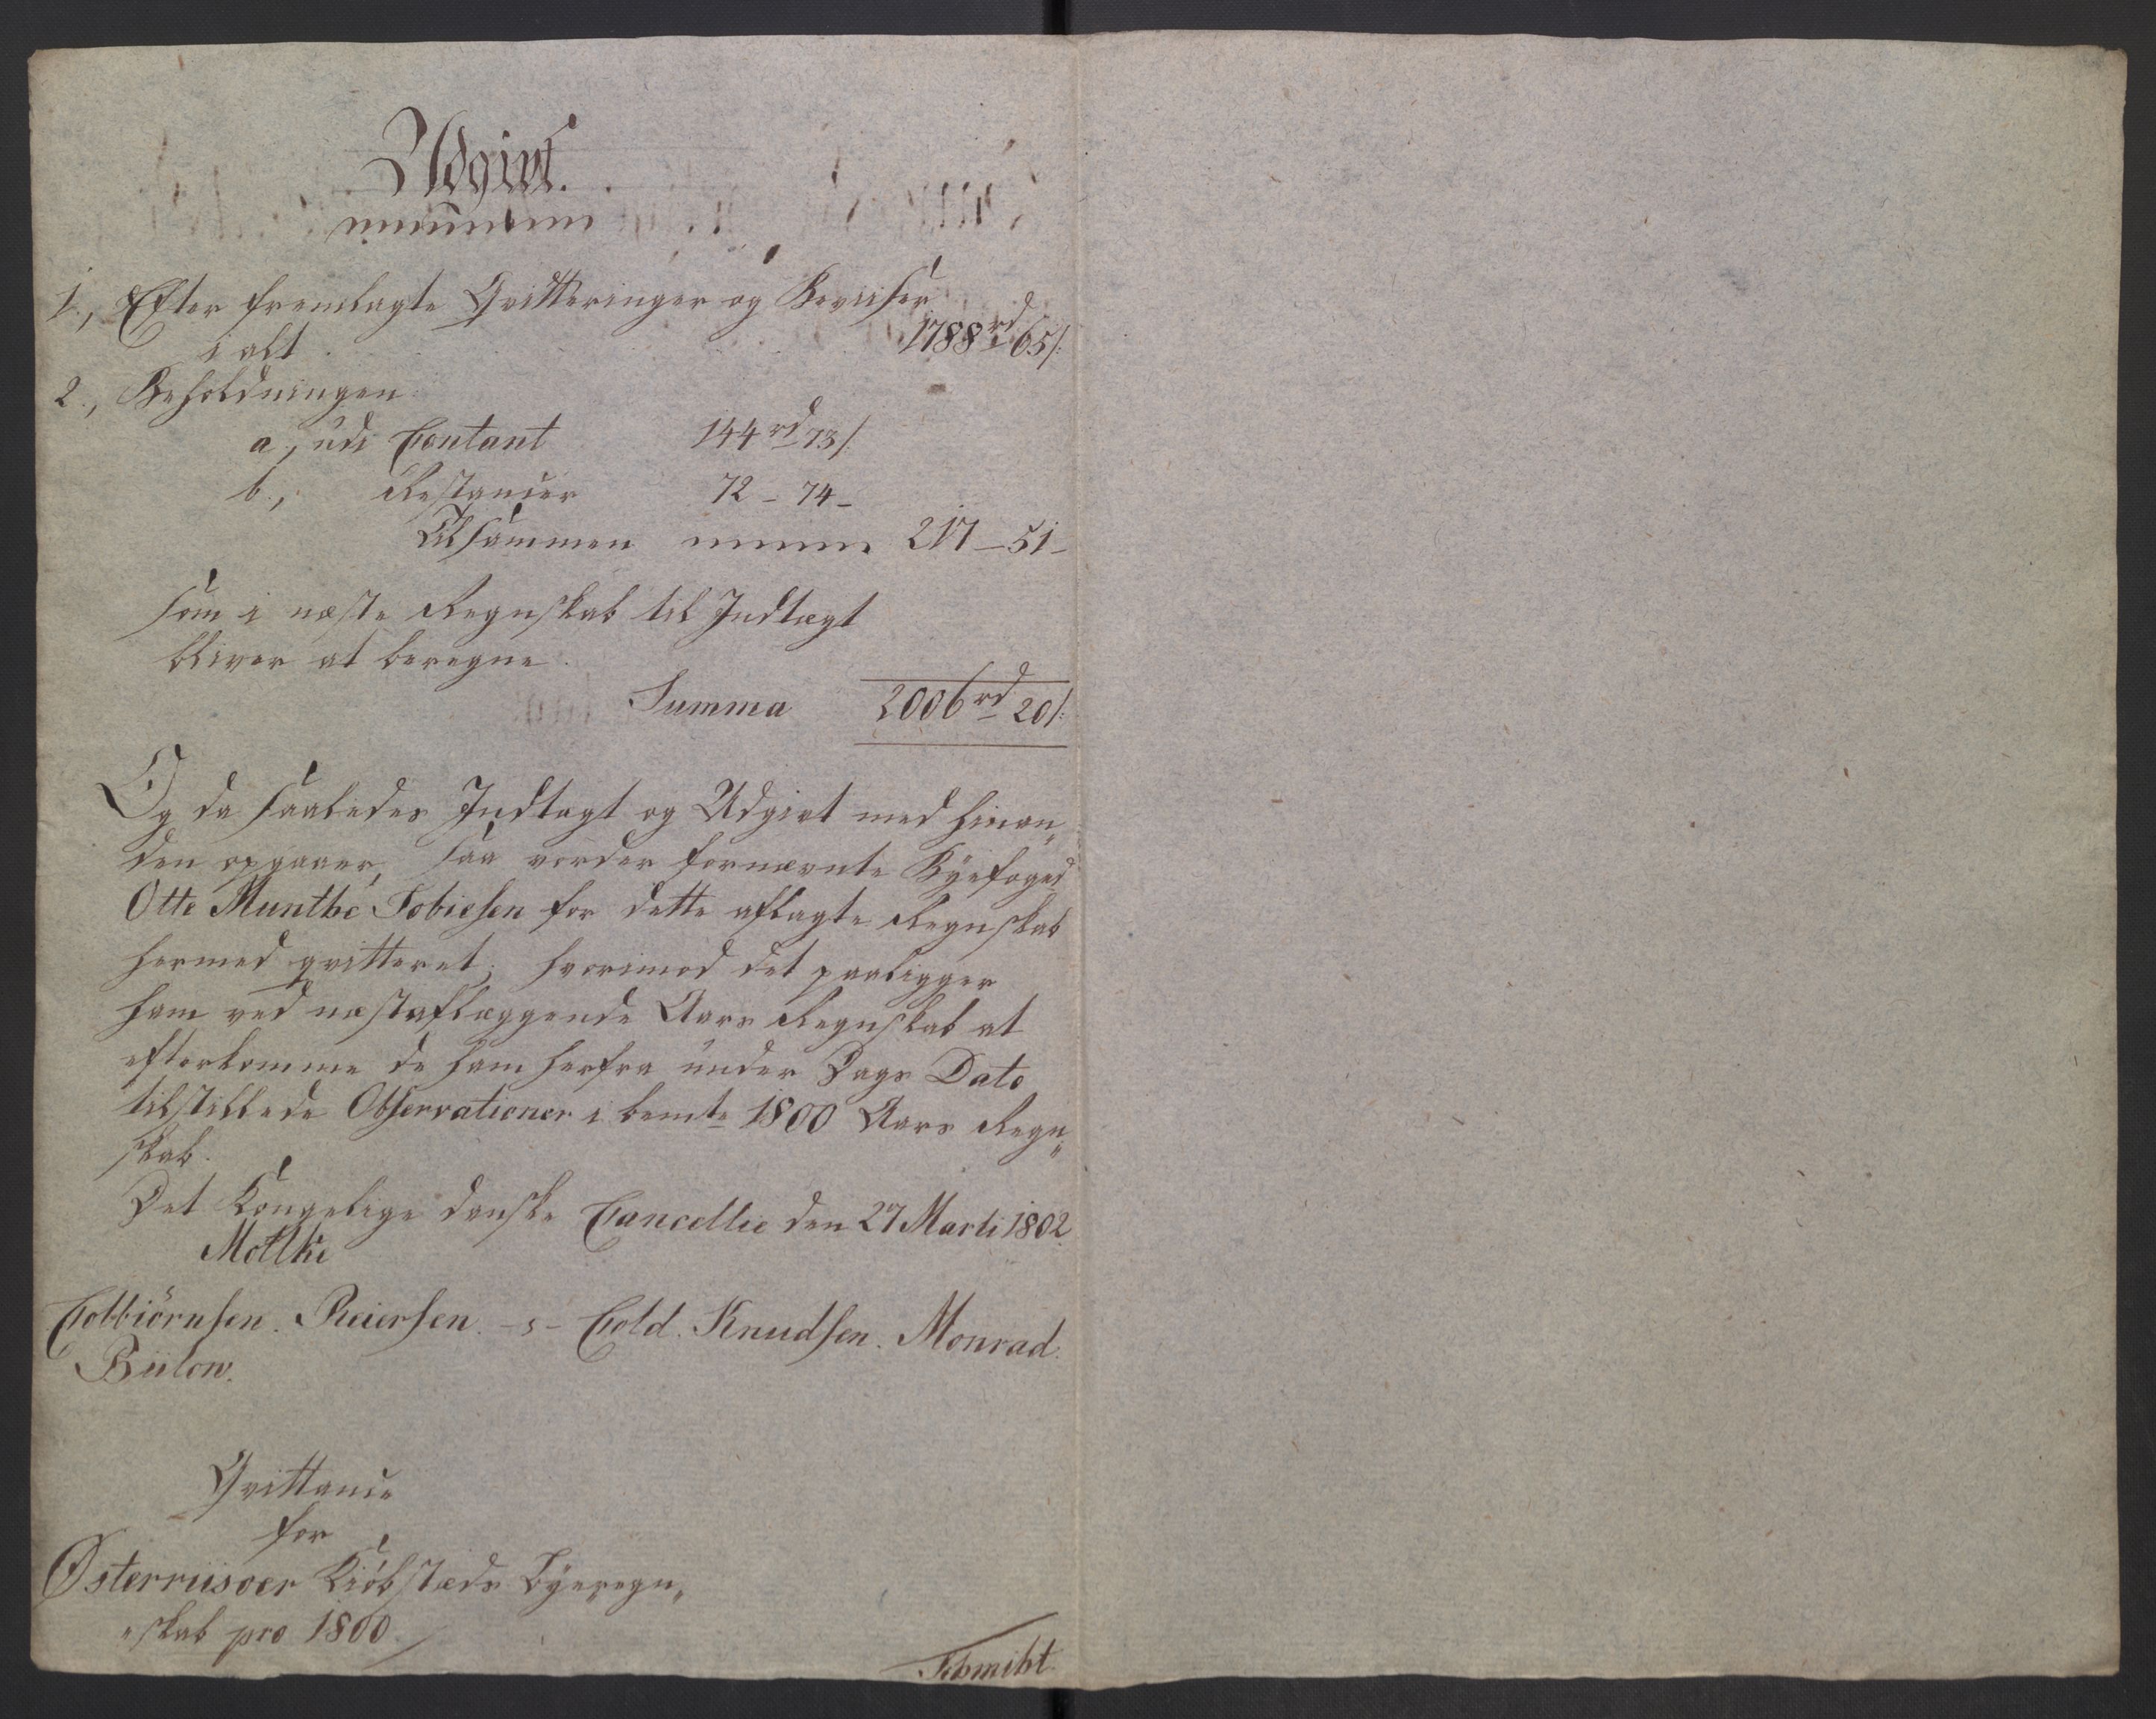 Udgivt.
1., Efter fremlagte Qvitteringer og Beviiser
i alt 1788 rd 65 s:
2., Beholdningen
a., udi Contant 144 rd 73 s:
b., Restancer 72 - 74 -
tilsammen 217 - 51 -
som i næste Regnskab til Indtægt
bliver at beregne.
Summa 2006 rd 20 s:
Og da saaledes Indtægt og Udgivt med hinan„
den opgaaer, saa vorder fornævnte Byefoged
Otte Munthe Tobiesen for dette aflagte Regnskab
hermed qvitteret; hvorimod det paaligger
ham ved næstaflæggende Aars Regnskab at
efterkomme de ham herfra under Dags Dato
tilstillede Observationer i bemte 1800 Aars Regn„
skab.
Det Kongelige danske Cancellie den 27 Marti 1802.
Moltke
Colbiörnsen. Reiersen. -s- Cold. Knudsen. Monrad.
Bülow.
Qvittance
for
Østerriisøer Kiöbstæds Byeregn„
„skab pro 1800.
Schmidt